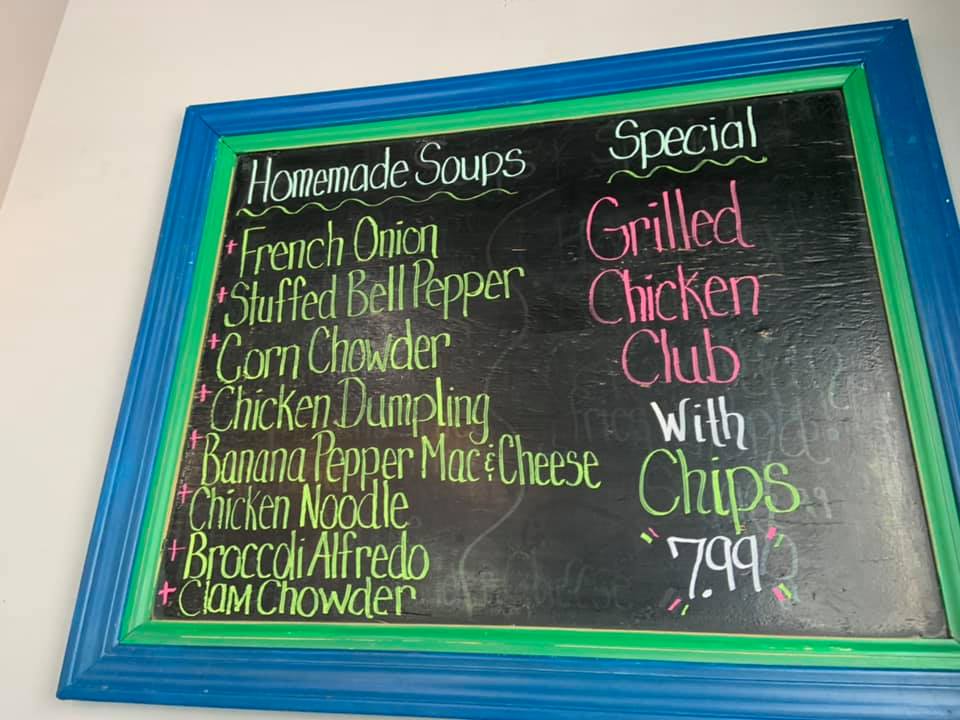 Homemade Soups
+ French Onion
+ Stuffed Bell Pepper
+ Corn Chowder
+ Chicken Dumpling
+ Banana Pepper Mac & Cheese
+ Chicken Noodle
+ Broccoli Alfredo
+ Clam Chowder
Special
Grilled
Chicken
Club
With
Chips
7.99